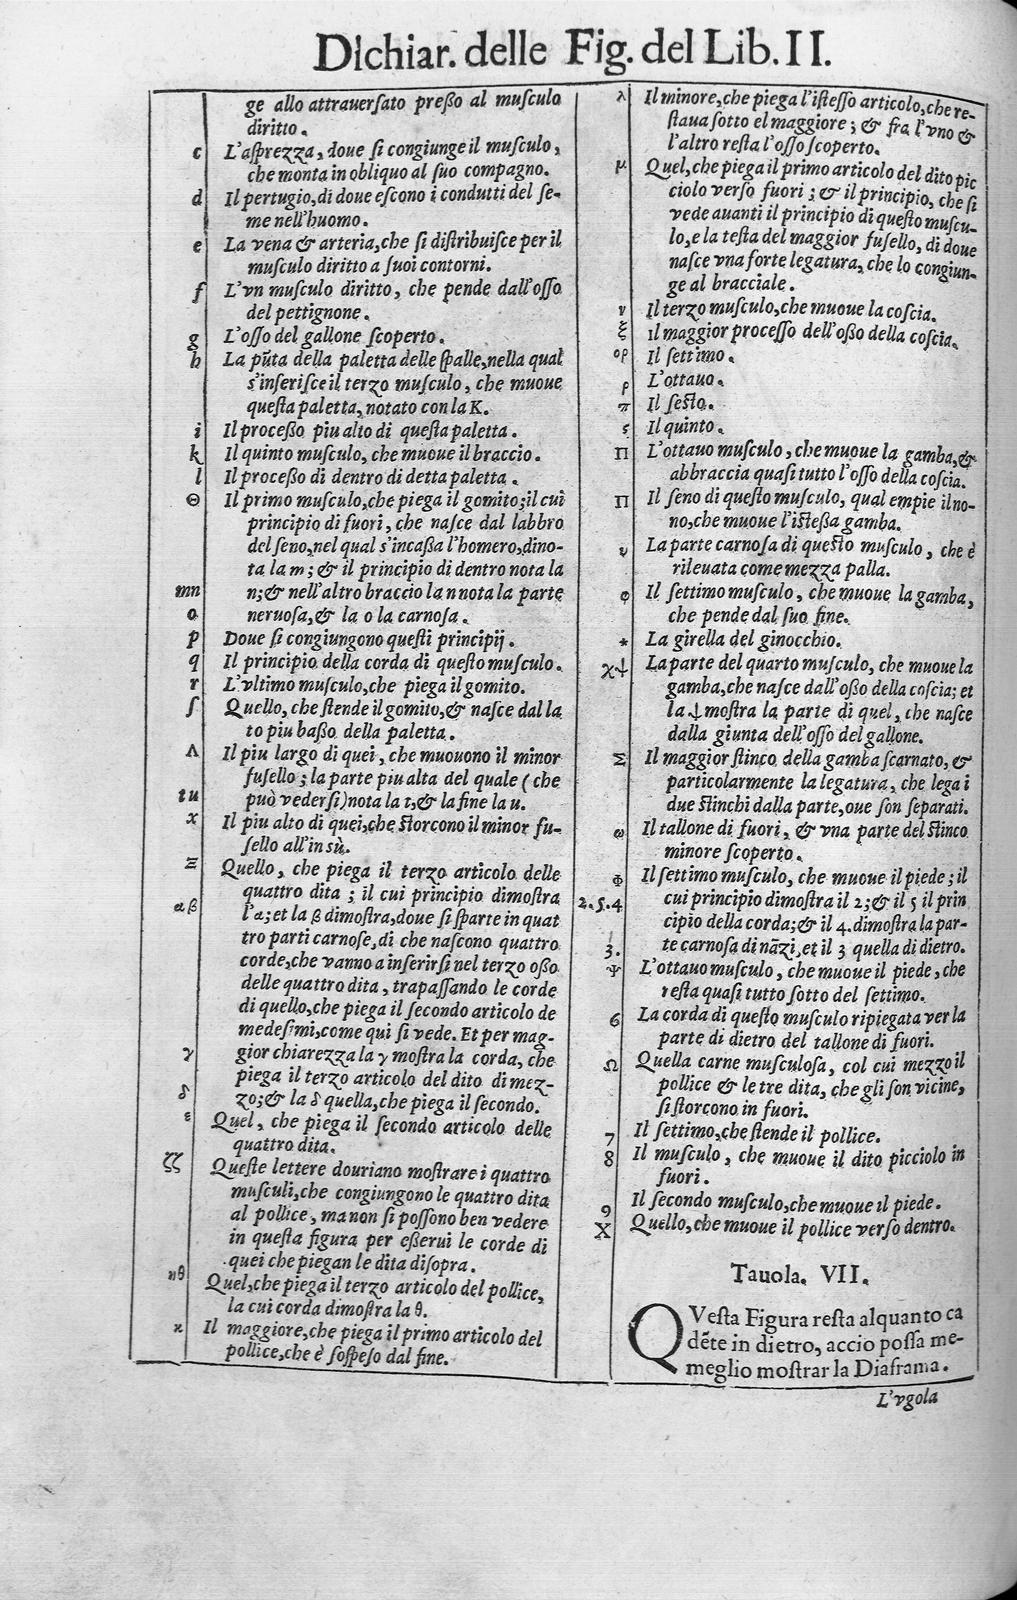 Dichiar. delle Fig. del Lib. II.
ge allo attrauerſato preßo al muſculo
diritto.
c L'aſprezza, doue ſi congiunge il muſculo,
che monta in obliquo al ſuo compagno.
d Il pertugio, di doue eſcono i condutti del ſe-
me nell'huomo.
e La vena & arteria, che ſi diſtribuiſce per il
muſculo diritto a ſuoi contorni.
f L'vn muſculo diritto, che pende dall'oſſo
del pettignone.
g L'oſſo del gallone ſcoperto.
h La pūta della paletta delle ſpalle, nella qual
s'inſeriſce il terzo muſculo, che muoue
queſta paletta, notato con la K.
i Il proceßo piu alto di queſta paletta.
k Il quinto muſculo, che muoue il braccio.
l Il proceßo di dentro di detta paletta.
Θ Il primo muſculo, che piega il gomito; il cui
principio di fuori, che naſce dal labbro
del ſeno, nel qual s'incaßa l'homero, dino-
ta la m; & il principio di dentro nota la
mn n; & nell'altro braccio la n nota la parte
o neruoſa, & la o la carnoſa.
p Doue ſi congiungono queſti principij.
q Il principio della corda di queſto muſculo.
r L'vltimo muſculo, che piega il gomito.
ſ Quello, che ſtende il gomito, & naſce dal la
to piu baßo della paletta.
Λ Il piu largo di quei, che muouono il minor
fuſello; la parte piu alta del quale (che
tu può vederſi) nota la t, & la fine la u.
x Il piu alto di quei, che ſtorcono il minor fu-
ſello all'in sù.
Ξ Quello, che piega il terzo articolo delle
quattro dita; il cui principio dimoſtra
αβ l'α; et la β dimoſtra, doue ſi ſparte in quat
tro parti carnoſe, di che naſcono quattro
corde, che vanno a inſerirſi nel terzo oßo
delle quattro dita, trapaſſando le corde
di quello, che piega il ſecondo articolo de
medeſimi, come qui ſi vede. Et per mag-
γ gior chiarezza la γ moſtra la corda, che
piega il terzo articolo del dito di mez-
δ zo; & la δ quella, che piega il ſecondo.
ε Quel, che piega il ſecondo articolo delle
quattro dita.
ζζ Queſte lettere douriano moſtrare i quattro
muſculi, che congiungono le quattro dita
al pollice, ma non ſi poſſono ben vedere
in queſta figura per eßerui le corde di
quei che piegan le dita diſopra.
ηθ Quel, che piega il terzo articolo del pollice,
la cui corda dimoſtra la θ.
κ Il maggiore, che piega il primo articolo del
pollice, che è ſoſpeſo dal fine.
λ Il minore, che piega l'iſteſſo articolo, che re-
ſtaua ſotto el maggiore; & fra l'vno &
l'altro reſta l'oſſo ſcoperto.
μ Quel, che piega il primo articolo del dito pic
ciolo verſo fuori; & il principio, che ſi
vede auanti il principio di queſto muſcu-
lo, e la teſta del maggior fuſello, di doue
naſce vna forte legatura, che lo congiun-
ge al bracciale.
ν Il terzo muſculo, che muoue la coſcia.
ξ Il maggior proceſſo dell'oßo della coſcia.
ορ Il ſettimo.
ρ L'ottauo.
π Il ſeſto.
ς Il quinto.
Π L'ottauo muſculo, che muoue la gamba, &
abbraccia quaſi tutto l'oſſo della coſcia.
Π Il ſeno di queſto muſculo, qual empie il no-
no, che muoue l'iſteßa gamba.
υ La parte carnoſa di queſto muſculo, che è
rileuata come mezza palla.
φ Il ſettimo muſculo, che muoue la gamba,
che pende dal ſuo fine.
* La girella del ginocchio.
χψ La parte del quarto muſculo, che muoue la
gamba, che naſce dall'oßo della coſcia; et
la ψ moſtra la parte di quel, che naſce
dalla giunta dell'oſſo del gallone.
Σ Il maggior ſtinco della gamba ſcarnato, &
particolarmente la legatura, che lega i
due ſtinchi dalla parte, oue ſon ſeparati.
ω Il tallone di fuori, & vna parte del ſtinco
minore ſcoperto.
Φ Il ſettimo muſculo, che muoue il piede; il
2.5.4 cui principio dimoſtra il 2; & il 5 il prin
cipio della corda; & il 4. dimoſtra la par-
3. te carnoſa di nāzi, et il 3 quella di dietro.
Ψ L'ottauo muſculo, che muoue il piede, che
reſta quaſi tutto ſotto del ſettimo.
6 La corda di queſto muſculo ripiegata ver la
parte di dietro del tallone di fuori.
Ω Quella carne muſculoſa, col cui mezzo il
pollice & le tre dita, che gli ſon vicine,
ſi ſtorcono in fuori.
7 Il ſettimo, che ſtende il pollice.
8 Il muſculo, che muoue il dito picciolo in
fuori.
9 Il ſecondo muſculo, che muoue il piede.
X Quello, che muoue il pollice verſo dentro.
Tauola. VII.
QVeſta Figura reſta alquanto ca
dēte in dietro, accio poſſa me-
meglio moſtrar la Diaframa.
L'vgola